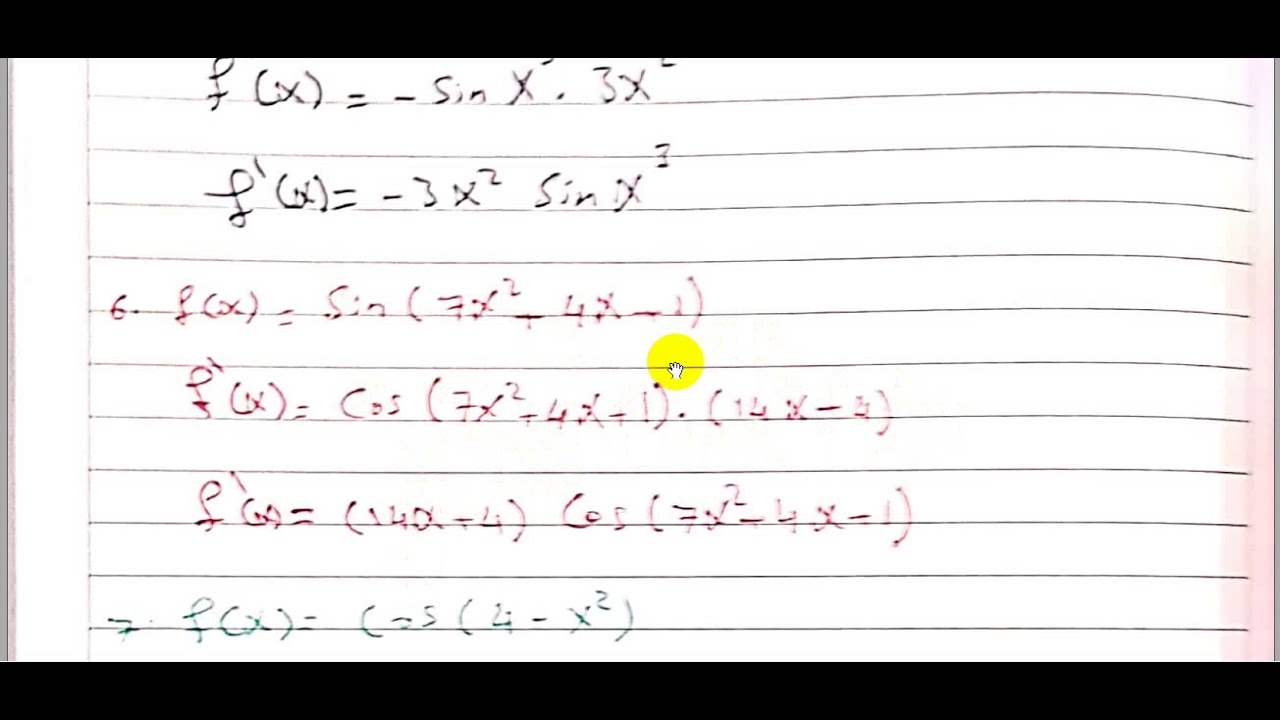 f (x) = - sin x³ . 3x²
f'(x) = - 3x² sin x³
6. f(x) = sin (7x² - 4x - 1)
f'(x) = Cos (7x² - 4x - 1) . (14x - 4)
f'(x) = (14x - 4) Cos (7x² - 4x - 1)
7. f(x) = Cos (4 - x²)